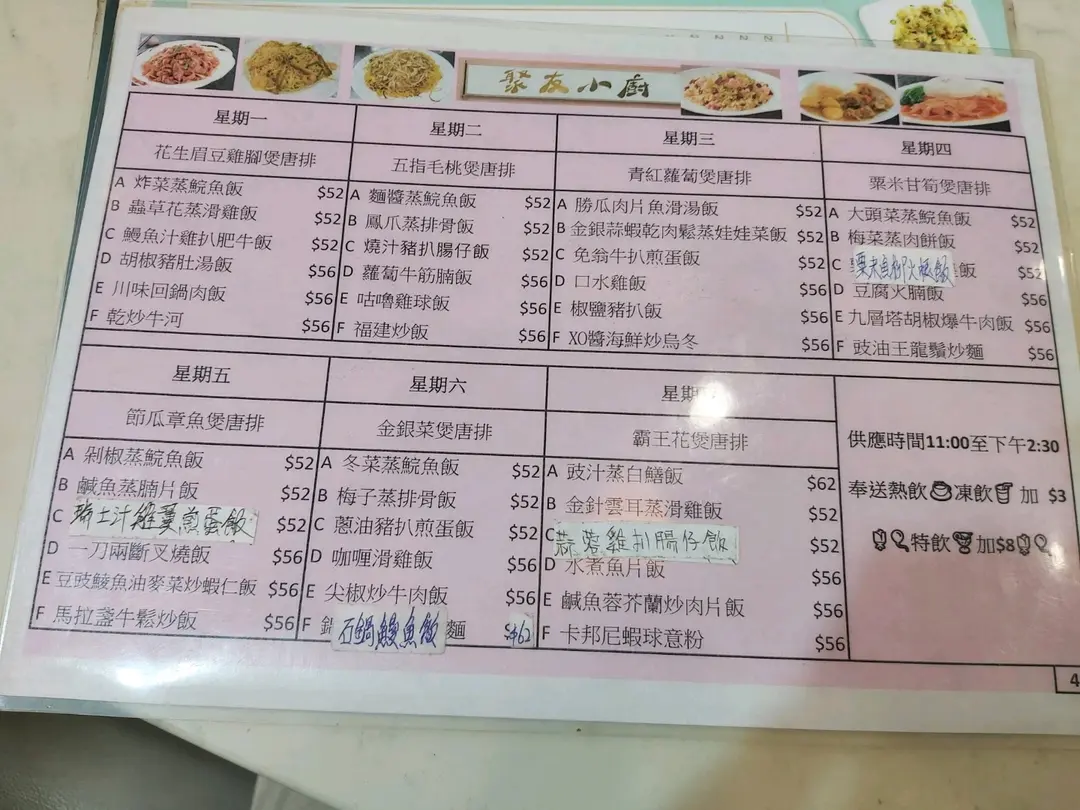 聚友小廚
星期一
花生眉豆雞腳煲唐排
A 炸菜蒸鯇魚飯 $52
B 蟲草花蒸滑雞飯 $52
C 鰻魚汁雞扒肥牛飯 $52
D 胡椒豬肚湯飯 $56
E 川味回鍋肉飯 $56
F 乾炒牛河 $56
星期二
五指毛桃煲唐排
A 麵醬蒸鯇魚飯 $52
B 鳳爪蒸排骨飯 $52
C 燒汁豬扒腸仔飯 $52
D 蘿蔔牛筋腩飯 $56
E 咕嚕雞球飯 $56
F 福建炒飯 $56
星期三
青紅蘿蔔煲唐排
A 勝瓜肉片魚滑湯飯 $52
B 金銀蒜蝦乾肉鬆蒸娃娃菜飯 $52
C 免翁牛扒煎蛋飯 $52
D 口水雞飯 $56
E 椒鹽豬扒飯 $56
F XO醬海鮮炒烏冬 $56
星期四
粟米甘筍煲唐排
A 大頭菜蒸鯇魚飯 $52
B 梅菜蒸肉餅飯 $52
C 粟米魚柳火腿飯 飯 $52
D 豆腐火腩飯 $56
E 九層塔胡椒爆牛肉飯 $56
F 豉油王龍鬚炒麵 $56
星期五
節瓜章魚煲唐排
A 剁椒蒸鯇魚飯 $52
B 鹹魚蒸腩片飯 $52
C 瑞士汁雞翼煎蛋飯 $52
D 一刀兩斷叉燒飯 $56
E 豆豉鯪魚油麥菜炒蝦仁飯 $56
F 馬拉盞牛鬆炒飯 $56
星期六
金銀菜煲唐排
A 冬菜蒸鯇魚飯 $52
B 梅子蒸排骨飯 $52
C 蔥油豬扒煎蛋飯 $52
D 咖喱滑雞飯 $56
E 尖椒炒牛肉飯 $56
F 石鍋鰻魚飯 麵 $62
星期
霸王花煲唐排
A 豉汁蒸白鱔飯 $62
B 金針雲耳蒸滑雞飯 $52
C 蒜蓉雞扒腸仔飯 $52
D 水煮魚片飯 $56
E 鹹魚蓉芥蘭炒肉片飯 $56
F 卡邦尼蝦球意粉 $56
供應時間11:00至下午2:30
奉送熱飲 凍飲 加 $3
特飲 加$8
4